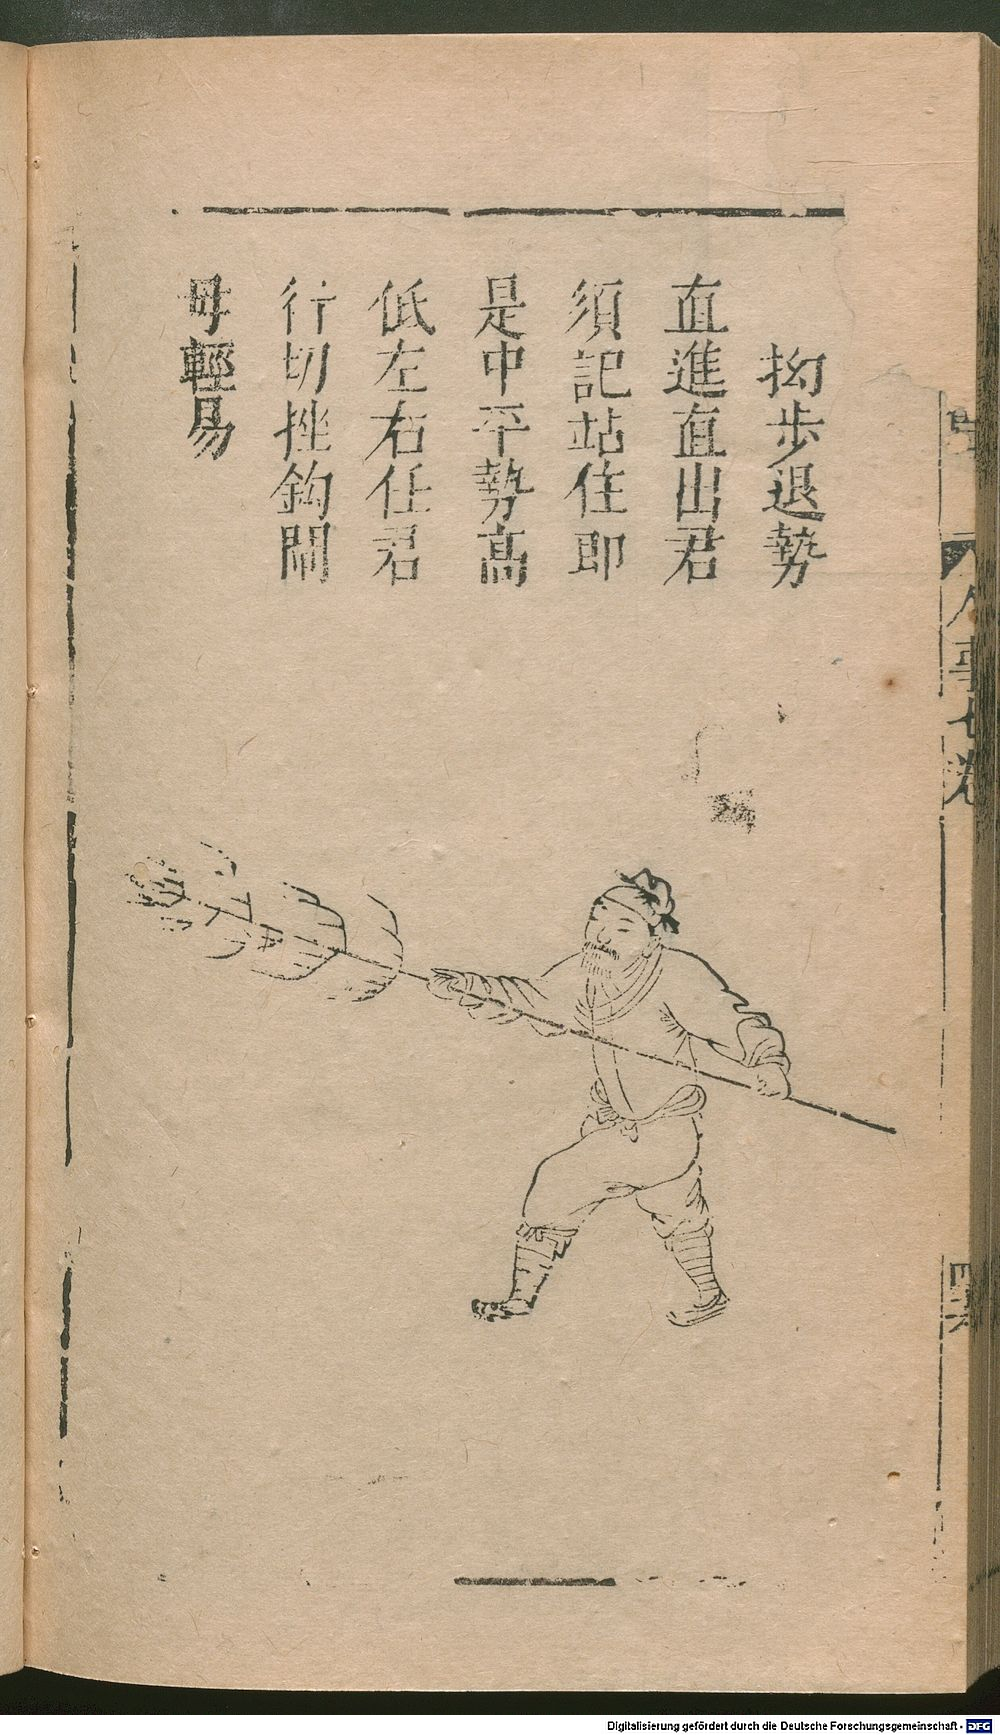 拗步退勢
直進直出君
須記站住即
是中平勢高
低左右任君
行切挫鈎閘
毋輕易
人事七卷
Digitalisierung gefördert durch die Deutsche Forschungsgemeinschaft - DFG